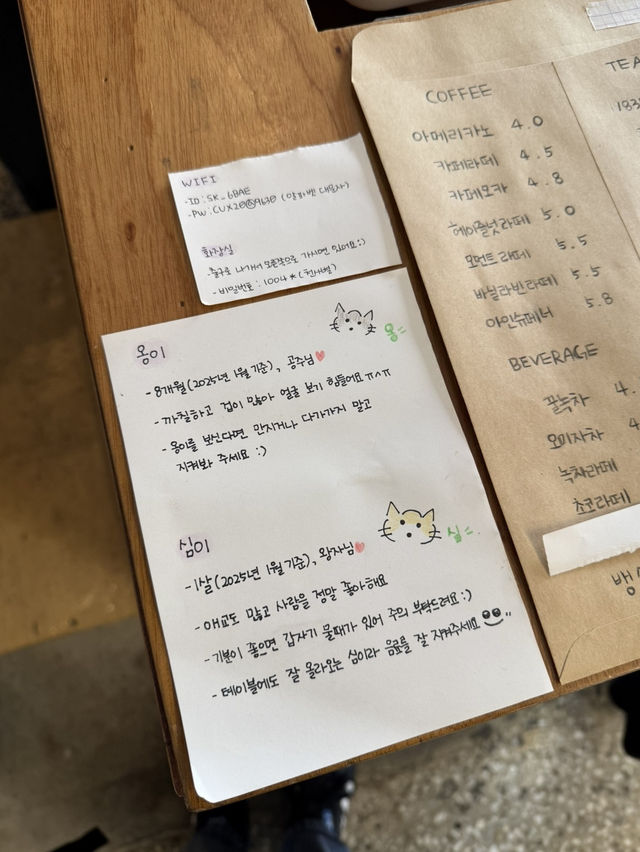 WIFI
- ID : SK_6BAE
(알파벳 대문자)
화장실
- 출구로 나가서 오른쪽으로 가시면 있어요 :)
- 비밀번호 : 1004 * (천사별)
옹이
옹
- 8개월 (2025년 1월 기준), 공주님
- 까칠하고 겁이 많아 얼굴 보기 힘들어요 ㅠㅅㅠ
- 옹이를 보신다면 만지거나 다가가지 말고
지켜봐 주세요 :)
심이
심
- 1살 (2025년 1월 기준), 왕자님
- 애교도 많고 사람을 정말 좋아해요
- 기분이 좋으면 갑자기 물때가 있어 주의 부탁드려요 :)
- 테이블에도 잘 올라오는 심이라 음료를 잘 지켜주세요
COFFEE
아메리카노 4.0
카페라떼 4.5
카페모카 4.8
헤이즐넛라떼 5.0
모먼트라떼 5.5
바닐라빈라떼 5.5
아인슈페너 5.8
BEVERAGE
꿀녹차 4.
오미자차 4
녹차라떼
초코라떼
뱅
TEA